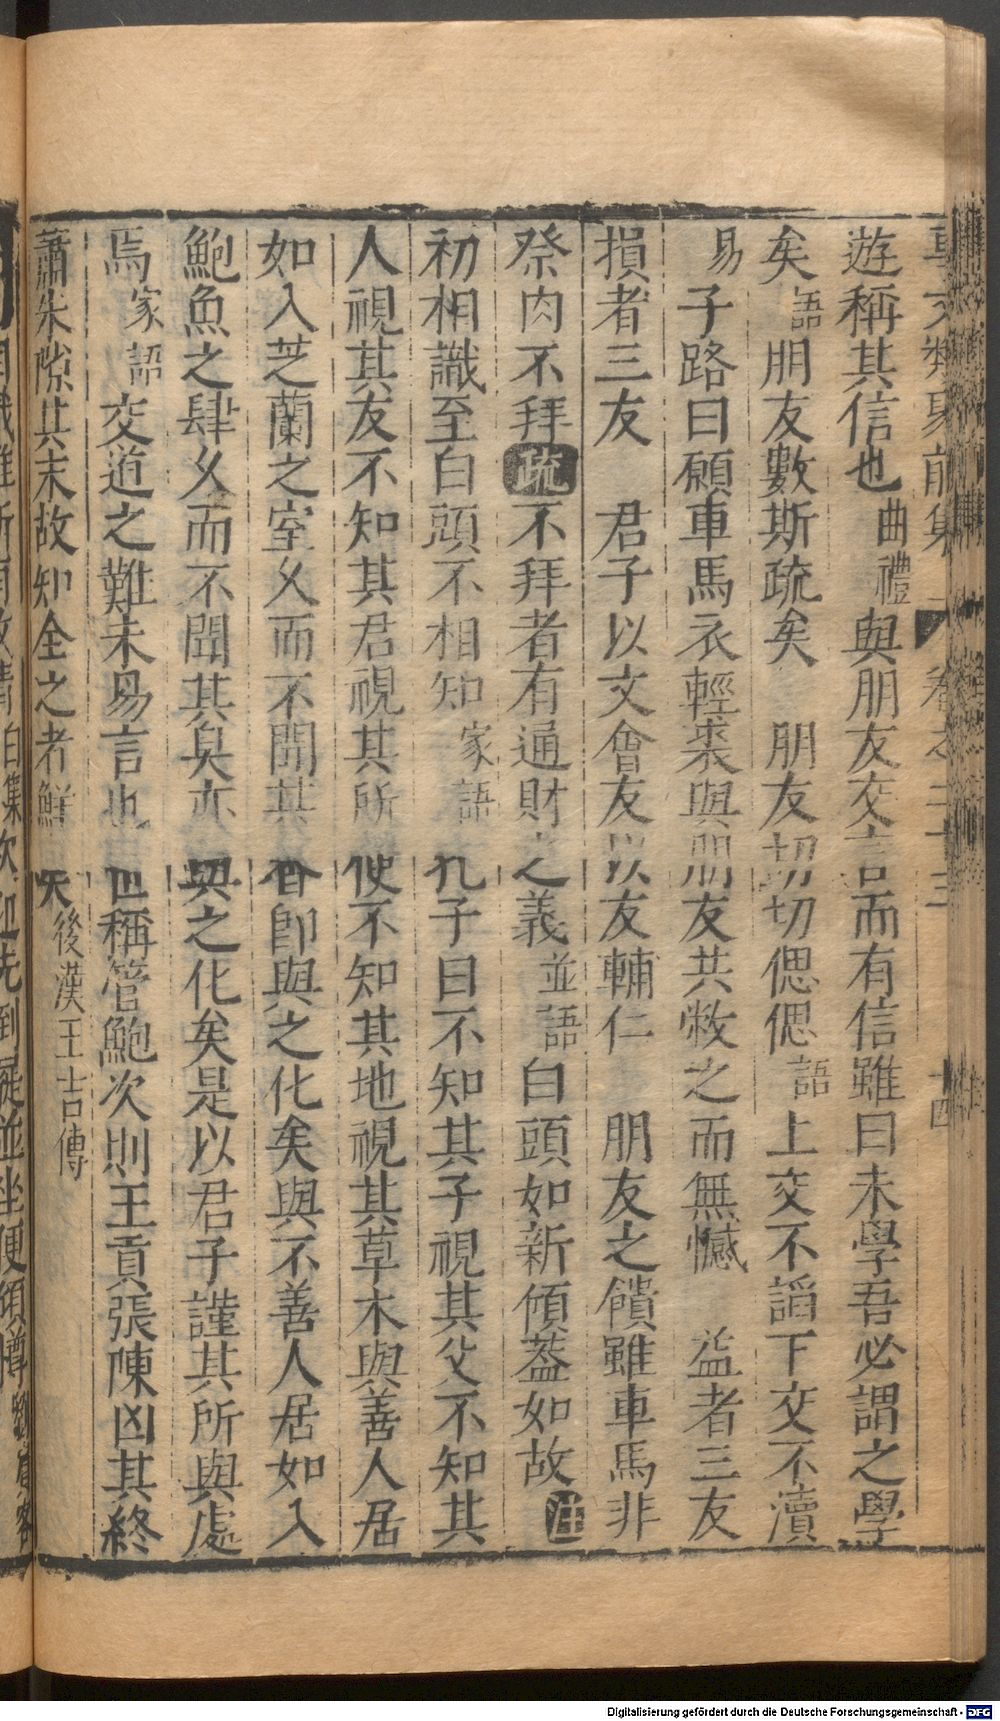 事文類聚前集 卷之二十三 十四
遊稱其信也曲禮與朋友交言而有信雖曰未學吾必謂之學
矣語朋友數斯疏矣 朋友切切偲偲語上交不謟下交不瀆
易子路曰願車馬衣輕裘與朋友共敝之而無憾 益者三友
損者三友 君子以文會友以友輔仁 朋友之饋雖車馬非
祭肉不拜疏不拜者有通財之義並語白頭如新傾蓋如故注
初相識至白頭不相知家語孔子曰不知其子視其父不知其
人視其友不知其君視其所使不知其地視其草木與善人居
如入芝蘭之室乆而不聞其香卽與之化矣與不善人居如入
鮑魚之肆乆而不聞其臭亦與之化矣是以君子謹其所與處
焉家語交道之難未易言也世稱管鮑次則王貢張陳凶其終
蕭朱隙其末故知全之者鮮矣後漢王吉傳
Digitalisierung gefördert durch die Deutsche Forschungsgemeinschaft - DFG